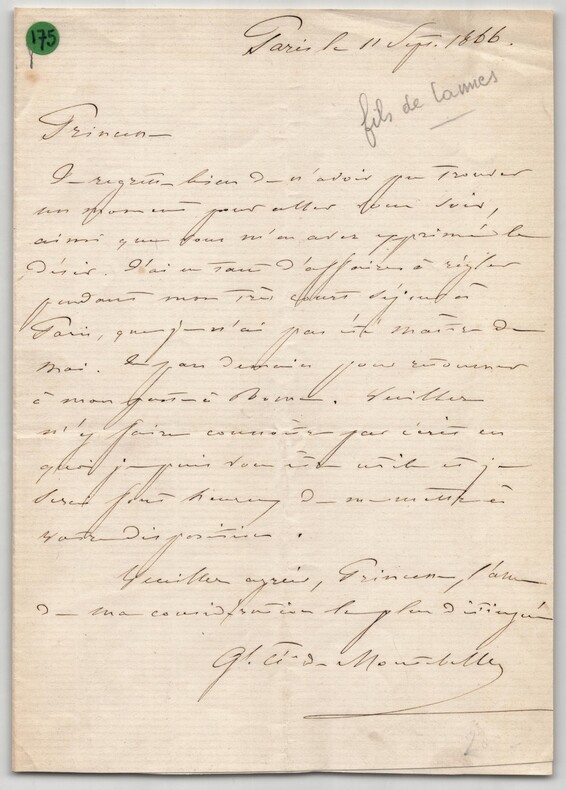 175
Paris le 11 Sept. 1866.
fils de Lannes
Princesse
Je regrette bien de n'avoir pu trouver
un moment pour aller vous voir,
ainsi que vous m'en avez exprimé le
désir. J'ai eu tant d'affaires à régler
pendant mon très court séjour à
Paris, que je n'ai pas été maître de
moi. Je pars demain pour retourner
à mon poste à Rome. Veuillez
m'y faire connaître par écrit en
quoi je puis vous être utile et je
serai fort heureux de me mettre à
votre disposition.
Veuillez agréer, Princesse, l'
de ma considération la plus distinguée
Gl. Cte de Montebello